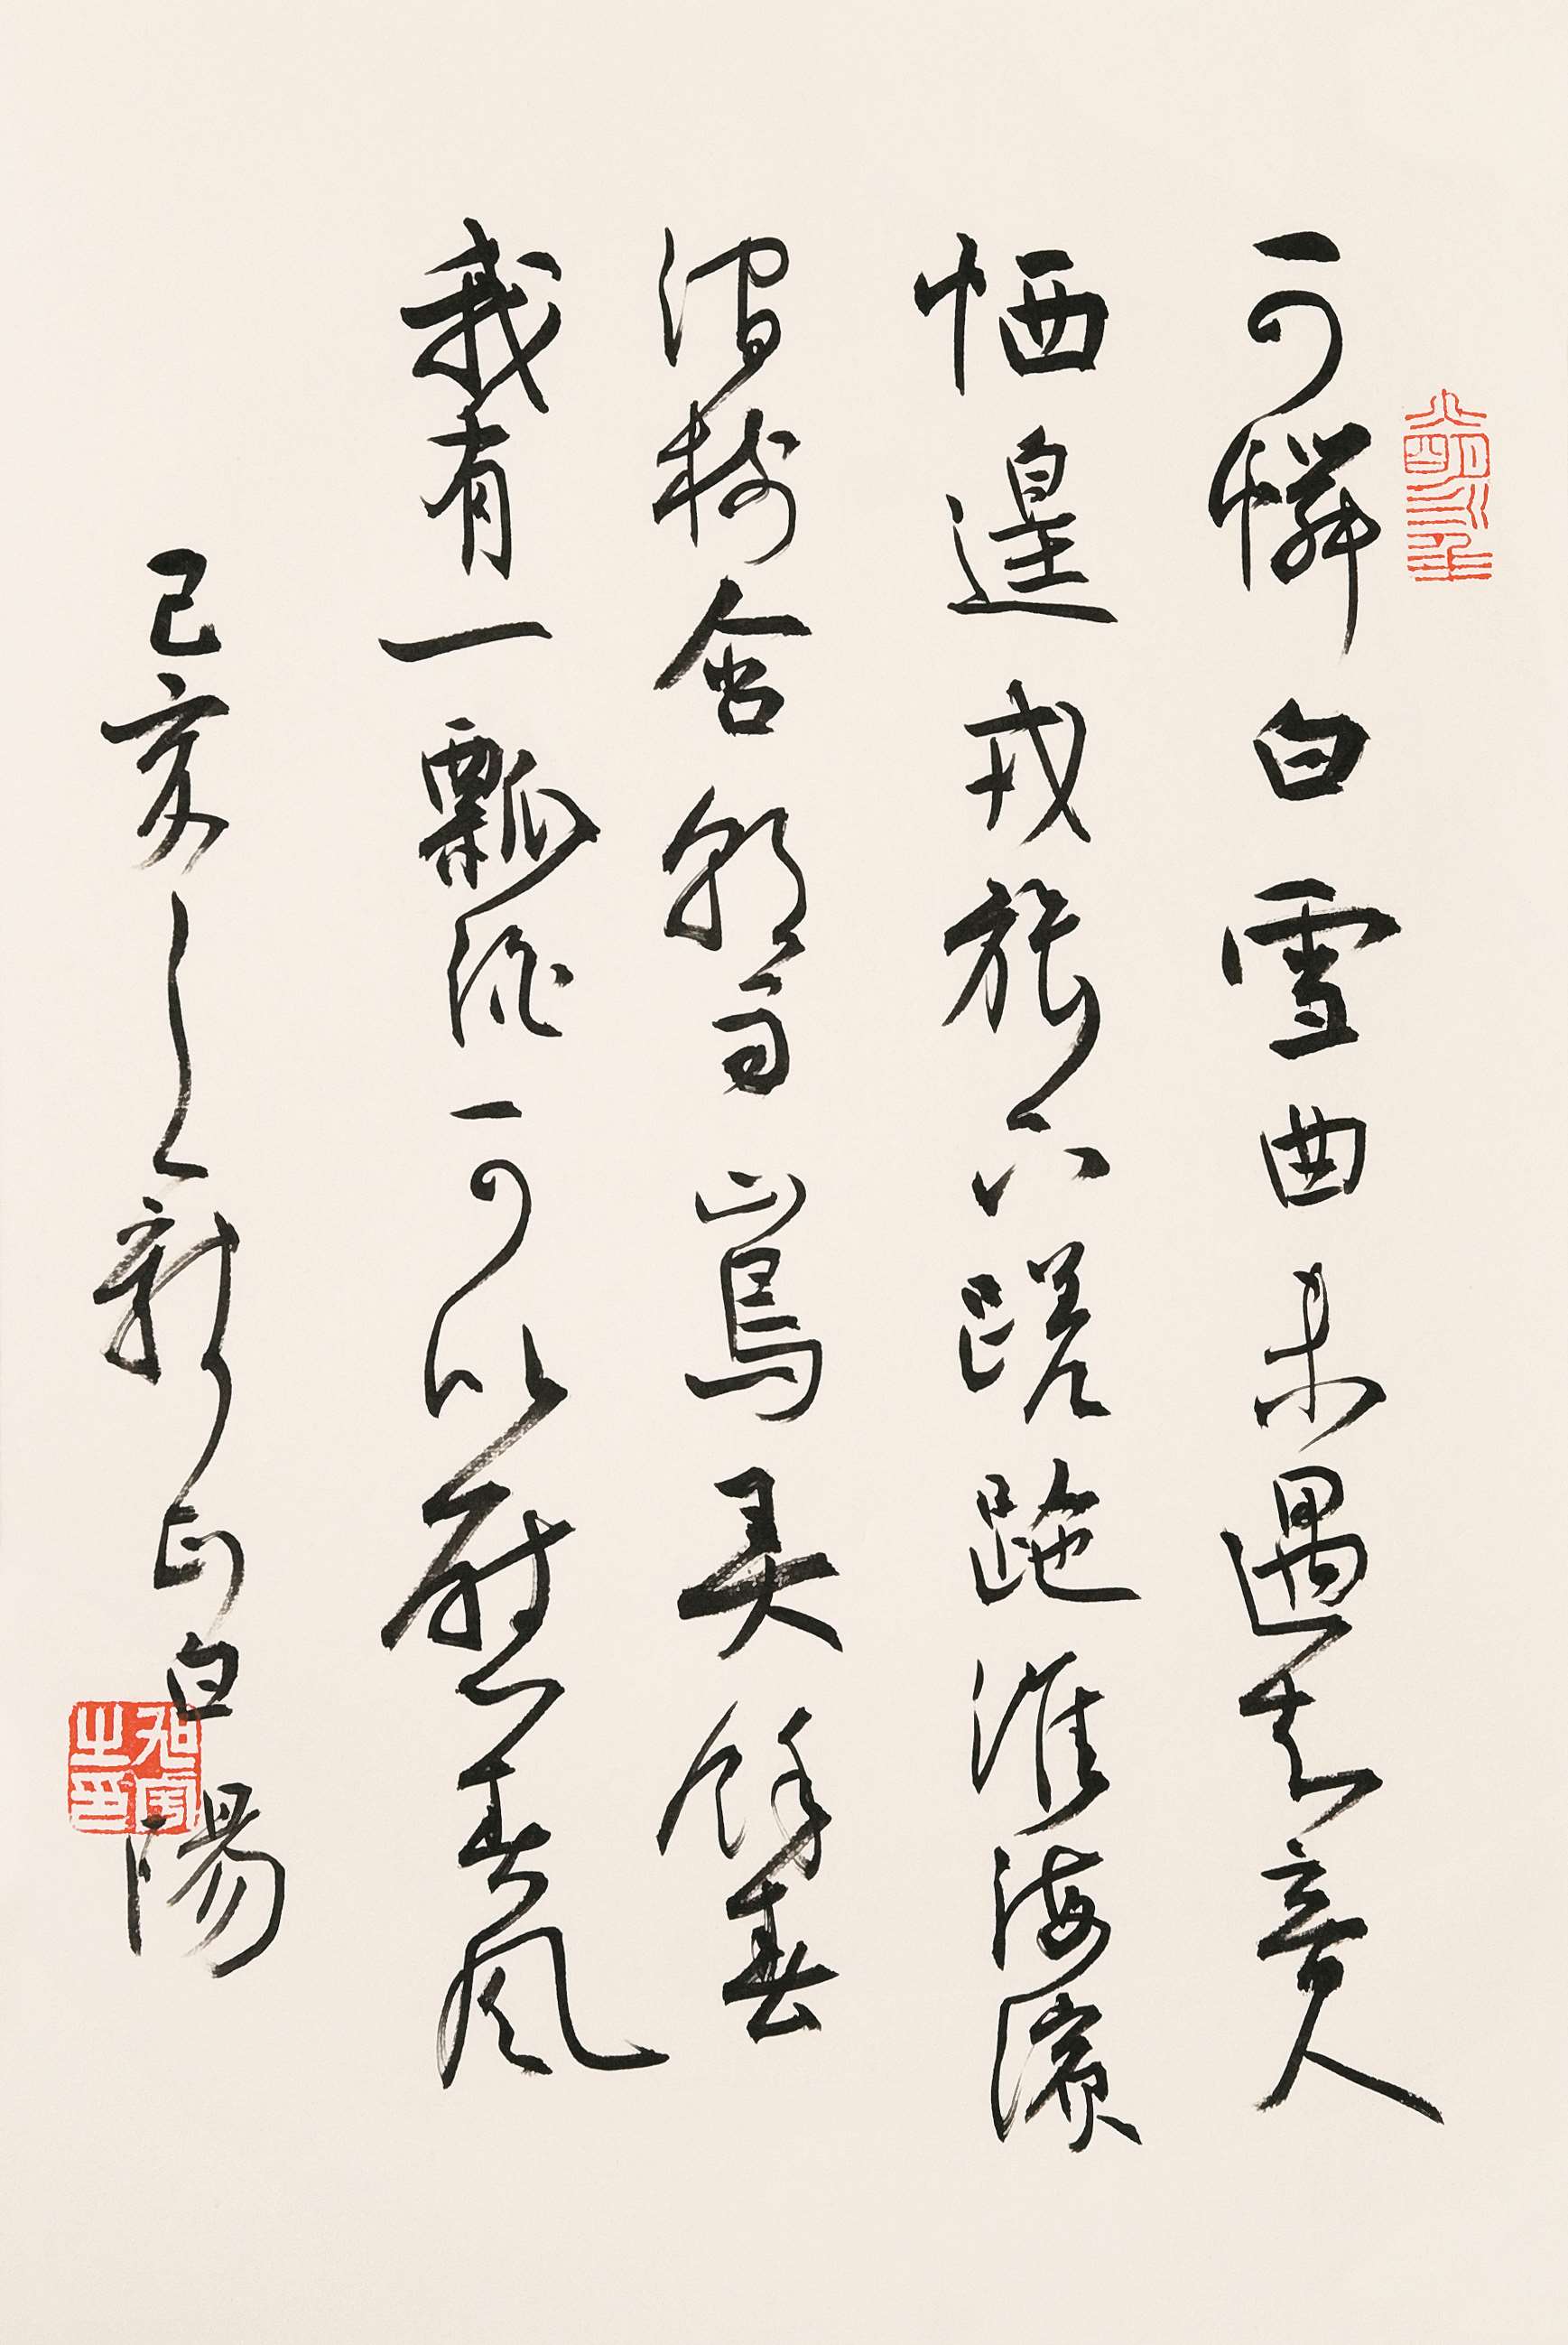 可憐白雪曲未遇知音人
恓遑戎旅下蹉跎淮海濱
澗樹含朝雨山鳥弄餘春
我有一瓢酒可以慰春風
己亥之新正白陽